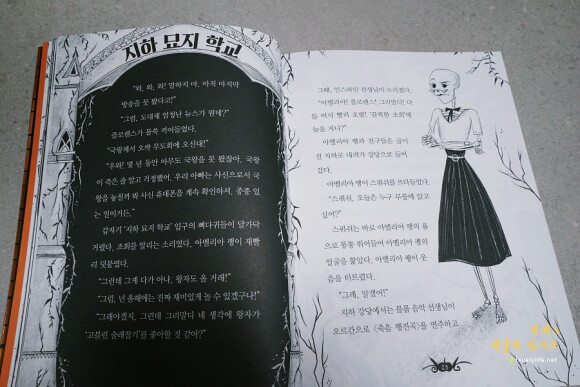 지하 묘지 학교
"와, 와, 와! 말하지 마, 아직 마지막
방송을 못 봤다고!"
"그럼, 도대체 엄청난 뉴스가 뭔데?"
플로렌스가 불쑥 끼어들었다.
"국왕께서 오싹 무도회에 오신대!"
"우와! 몇 년 동안 아무도 국왕을 못 봤잖아. 국왕
이 죽은 줄 알고 걱정했어. 우리 아빠는 사신으로서 국
왕을 놓칠까 봐 사신 휴대폰을 계속 확인하셔. 종종 있
는 일이거든."
갑자기 '지하 묘지 학교' 입구의 뼈다귀들이 달가닥
거렸다. 조회를 알리는 소리였다. 아멜리아 팽이 재빨
리 덧붙였다.
"그런데 그게 다가 아냐. 왕자도 올 거래!"
"그럼, 넌 올해에는 진짜 재미있게 놀 수 있겠구나!"
"그래야겠지. 그런데 그리말디 네 생각에 왕자가
'고블린 술래잡기'를 좋아할 것 같아?"
그때, 인스페인 선생님이 소리쳤다.
"아멜리아! 플로렌스! 그리말디! 다
들 어서 빨리 오렴! '끔찍한 조회'에
늦을 거니?"
아멜리아 팽과 친구들은 굽이
진 지하로 내려가 강당으로 들어
갔다.
아멜리아 팽이 스쿼쉬를 쓰다듬었다.
"스쿼쉬, 오늘은 누구 무릎에 앉고
싶어?"
스쿼쉬는 바로 아멜리아 팽의 품
으로 통통 뛰어들어 아멜리아 팽의
얼굴을 핥았다. 아멜리아 팽이 웃
음을 터트렸다.
"그래, 알겠어!"
지하 강당에서는 플룸 음악 선생님이
오르간으로 《죽음 행진곡》을 연주하고